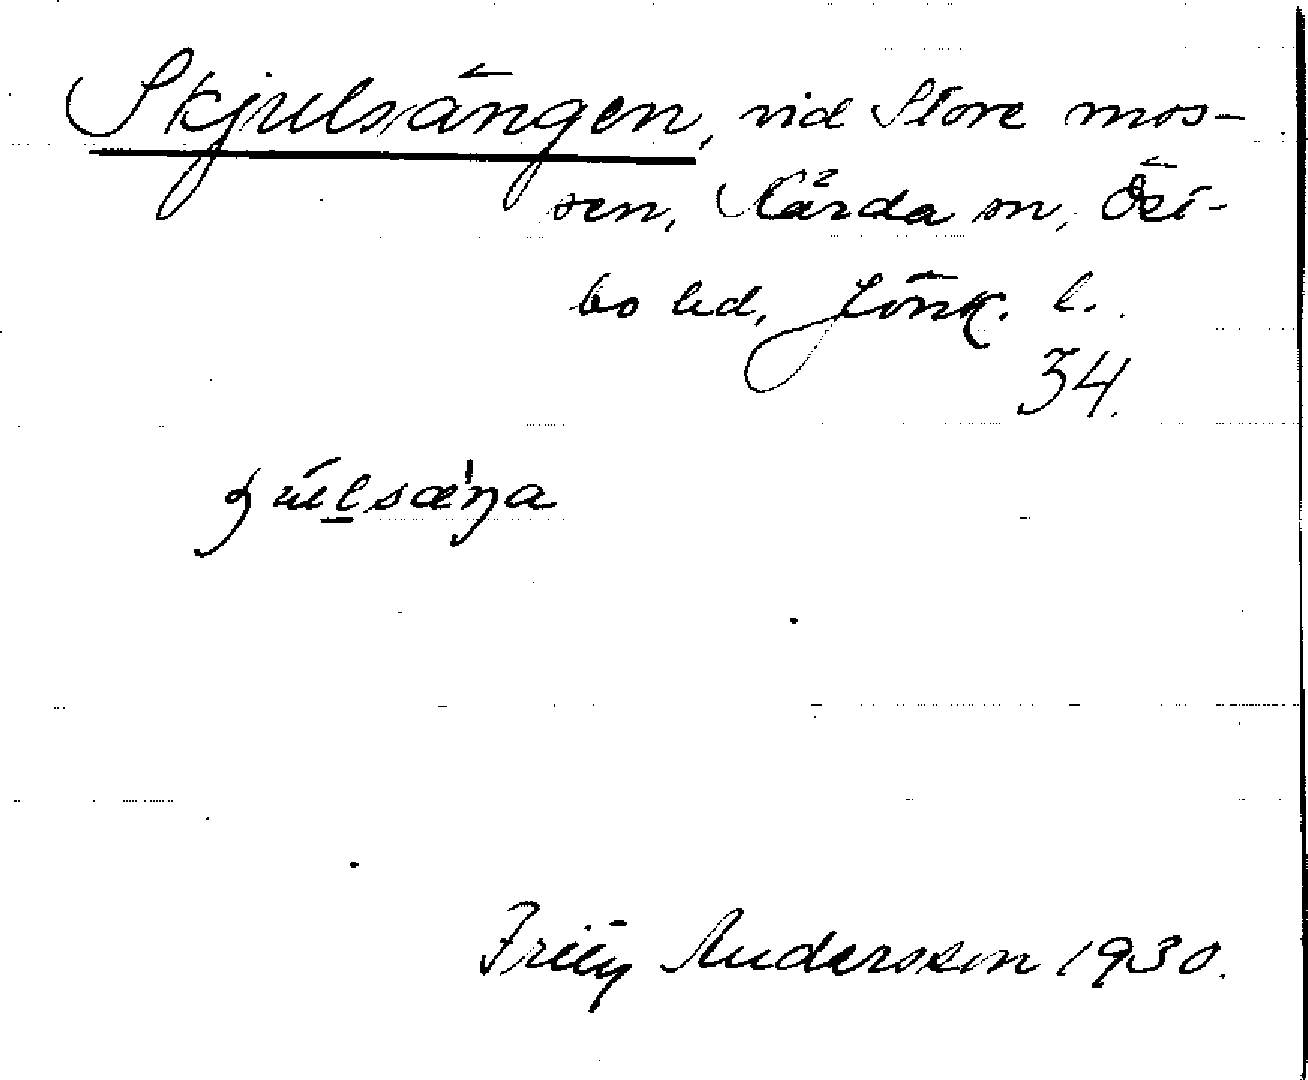 Skjulsängen, vid Store mos-
sen, Kärda sn, Öst-
bo hd, Jönk. l.
34.
Fritz Andersson 1930.